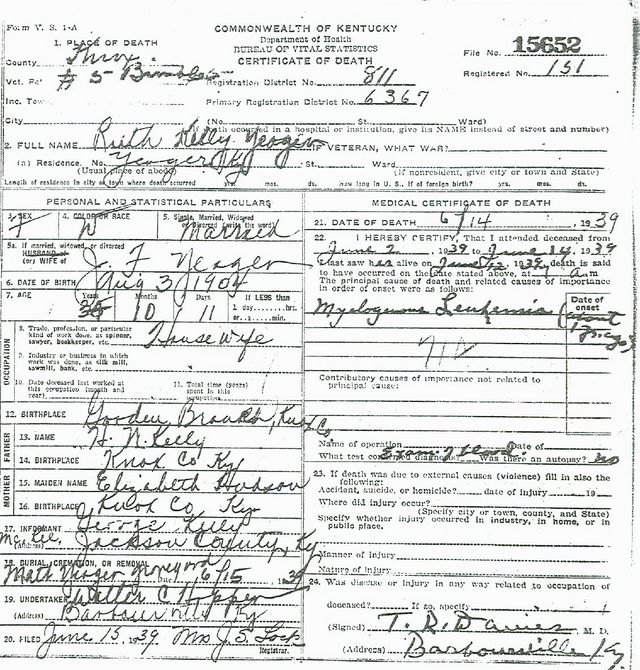 Form V. S. 1-A
COMMONWEALTH OF KENTUCKY
Department of Health
BUREAU OF VITAL STATISTICS
CERTIFICATE OF DEATH
File No. 15652
Registered No. 151
1. PLACE OF DEATH
County Knox
Vot. Pct. # 5 Brimbles
Registration District No. 811
Inc. Tow
Primary Registration District No. 6367
City (No. St. Ward)
(If death occurred in a hospital or institution, give its NAME instead of street and number)
2. FULL NAME Ruth Kelly Yeager VETERAN, WHAT WAR?
(a) Residence. No. Yeager Ky St., Ward
(Usual place of abode) (If nonresident, give city or town and State)
Length of residence in city or town where death occurred yrs. mos. ds. How long in U. S., if of foreign birth? yrs. mos. ds.
PERSONAL AND STATISTICAL PARTICULARS
3. SEX F
4. COLOR OR RACE W
5. Single, Married, Widowed or Divorced (write the word) Married
5a. If married, widowed, or divorced
HUSBAND of
(or) WIFE of J. F Yeager
6. DATE OF BIRTH Aug 3, 1904
7. AGE Years Months Days If LESS than
10 11 1 day, hrs.
or min.
OCCUPATION
8. Trade, profession, or particular kind of work done, as spinner, sawyer, bookkeeper, etc. Housewife
9. Industry or business in which work was done, as silk mill, sawmill, bank, etc.
10. Date deceased last worked at this occupation (month and year)
11. Total time (years) spent in this occupation
12. BIRTHPLACE Gooden Branch, Knox Co
FATHER
13. NAME H. N. Kelly
14. BIRTHPLACE Knox Co Ky
MOTHER
15. MAIDEN NAME Elizabeth Hudson
16. BIRTHPLACE Knox Co, Ky
17. INFORMANT George Kelly
(Address) McKee, Jackson County, Ky
18. BURIAL, CREMATION, OR REMOVAL
Matt Yeager Graveyard Date 6/15, 1939
19. UNDERTAKER Walter C Hopper
(Address) Barbourville Ky
20. FILED June 15, 1939 Mrs J. S. Lock
Registrar.
MEDICAL CERTIFICATE OF DEATH
21. DATE OF DEATH 6/14, 1939
22. I HEREBY CERTIFY, That I attended deceased from
June 2, 1939 to June 14, 1939
I last saw her alive on June 1939 death is said
to have occurred on the date stated above, at a m
The principal cause of death and related causes of importance
in order of onset were as follows:
Date of onset
Myelogenous Leukemia
Contributory causes of importance not related to
principal cause:
Name of operation Date of
What test confirmed diagnosis? Exam of blood Was there an autopsy? no
23. If death was due to external causes (violence) fill in also the
following:
Accident, suicide, or homicide? date of injury 19
Where did injury occur?
(Specify city or town, county, and State)
Specify whether injury occurred in industry, in home, or in
public place.
Manner of injury
Nature of injury
24. Was disease or injury in any way related to occupation of
deceased? If so, specify
(Signed) T. R. Davies, M. D.
(Address) Barbourville Ky.